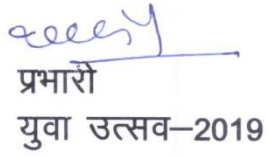 प्रभारी
युवा उत्सव–2019